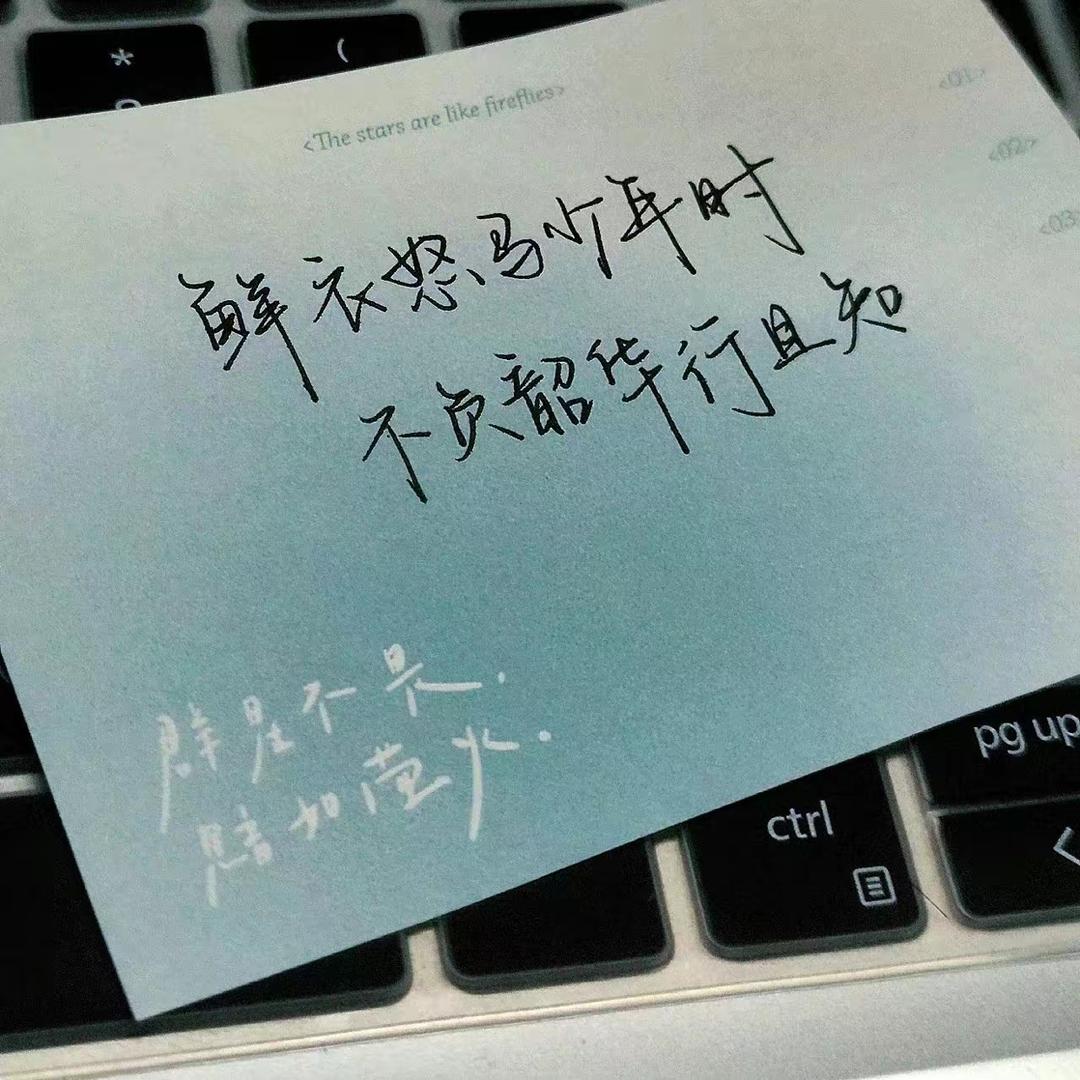 *
(
<The stars are like fireflies>
<01>
<02>
<03>
鲜衣怒马少年时
不负韶华行且知
群星不昃.
暗如萤火.
pg up
ctrl
<